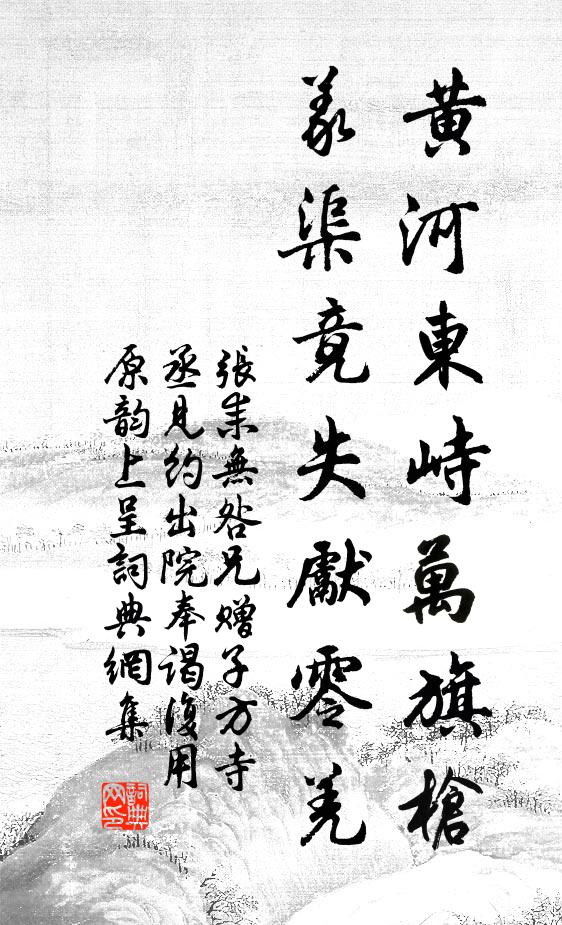 黄河東峙萬旗槍
義渠竟失獻零羌
張耒無咎兄贈子方寺
丞見約出院奉謁復用
原韵上呈詞典網集
詞典
网印